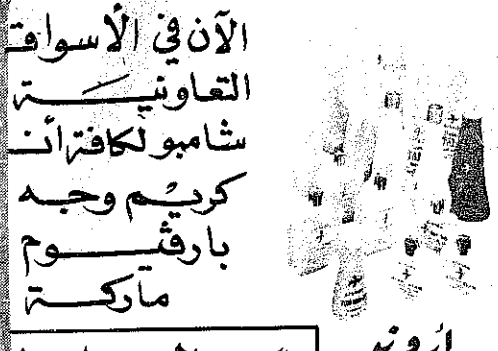 الآن في الأسواق
التعاونية
شامبو لكافة
كريم وجه
بارفيوم
ماركة